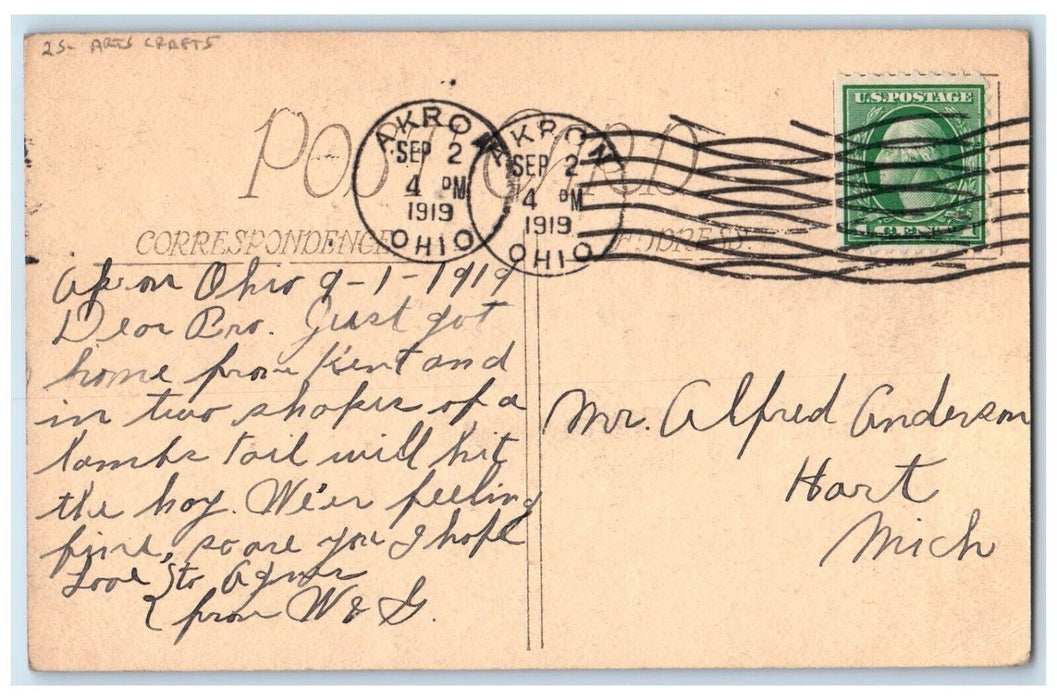 25- ARTS CRAFTS
POST CARD
AKRON
SEP 2
4 PM
1919
OHIO
AKRON
SEP 2
4 PM
1919
OHIO
U.S. POSTAGE
1 CENT 1
CORRESPONDENCE
ADDRESS
Akron Ohio 9-1-1919
Dear Bro. Just got
home from Kent and
in two shakes of a
lambs tail will hit
the hay. We'er feeling
fine, so are you I hope
Love to Agnes
from W & G.
Mr. Alfred Anderson
Hart
Mich